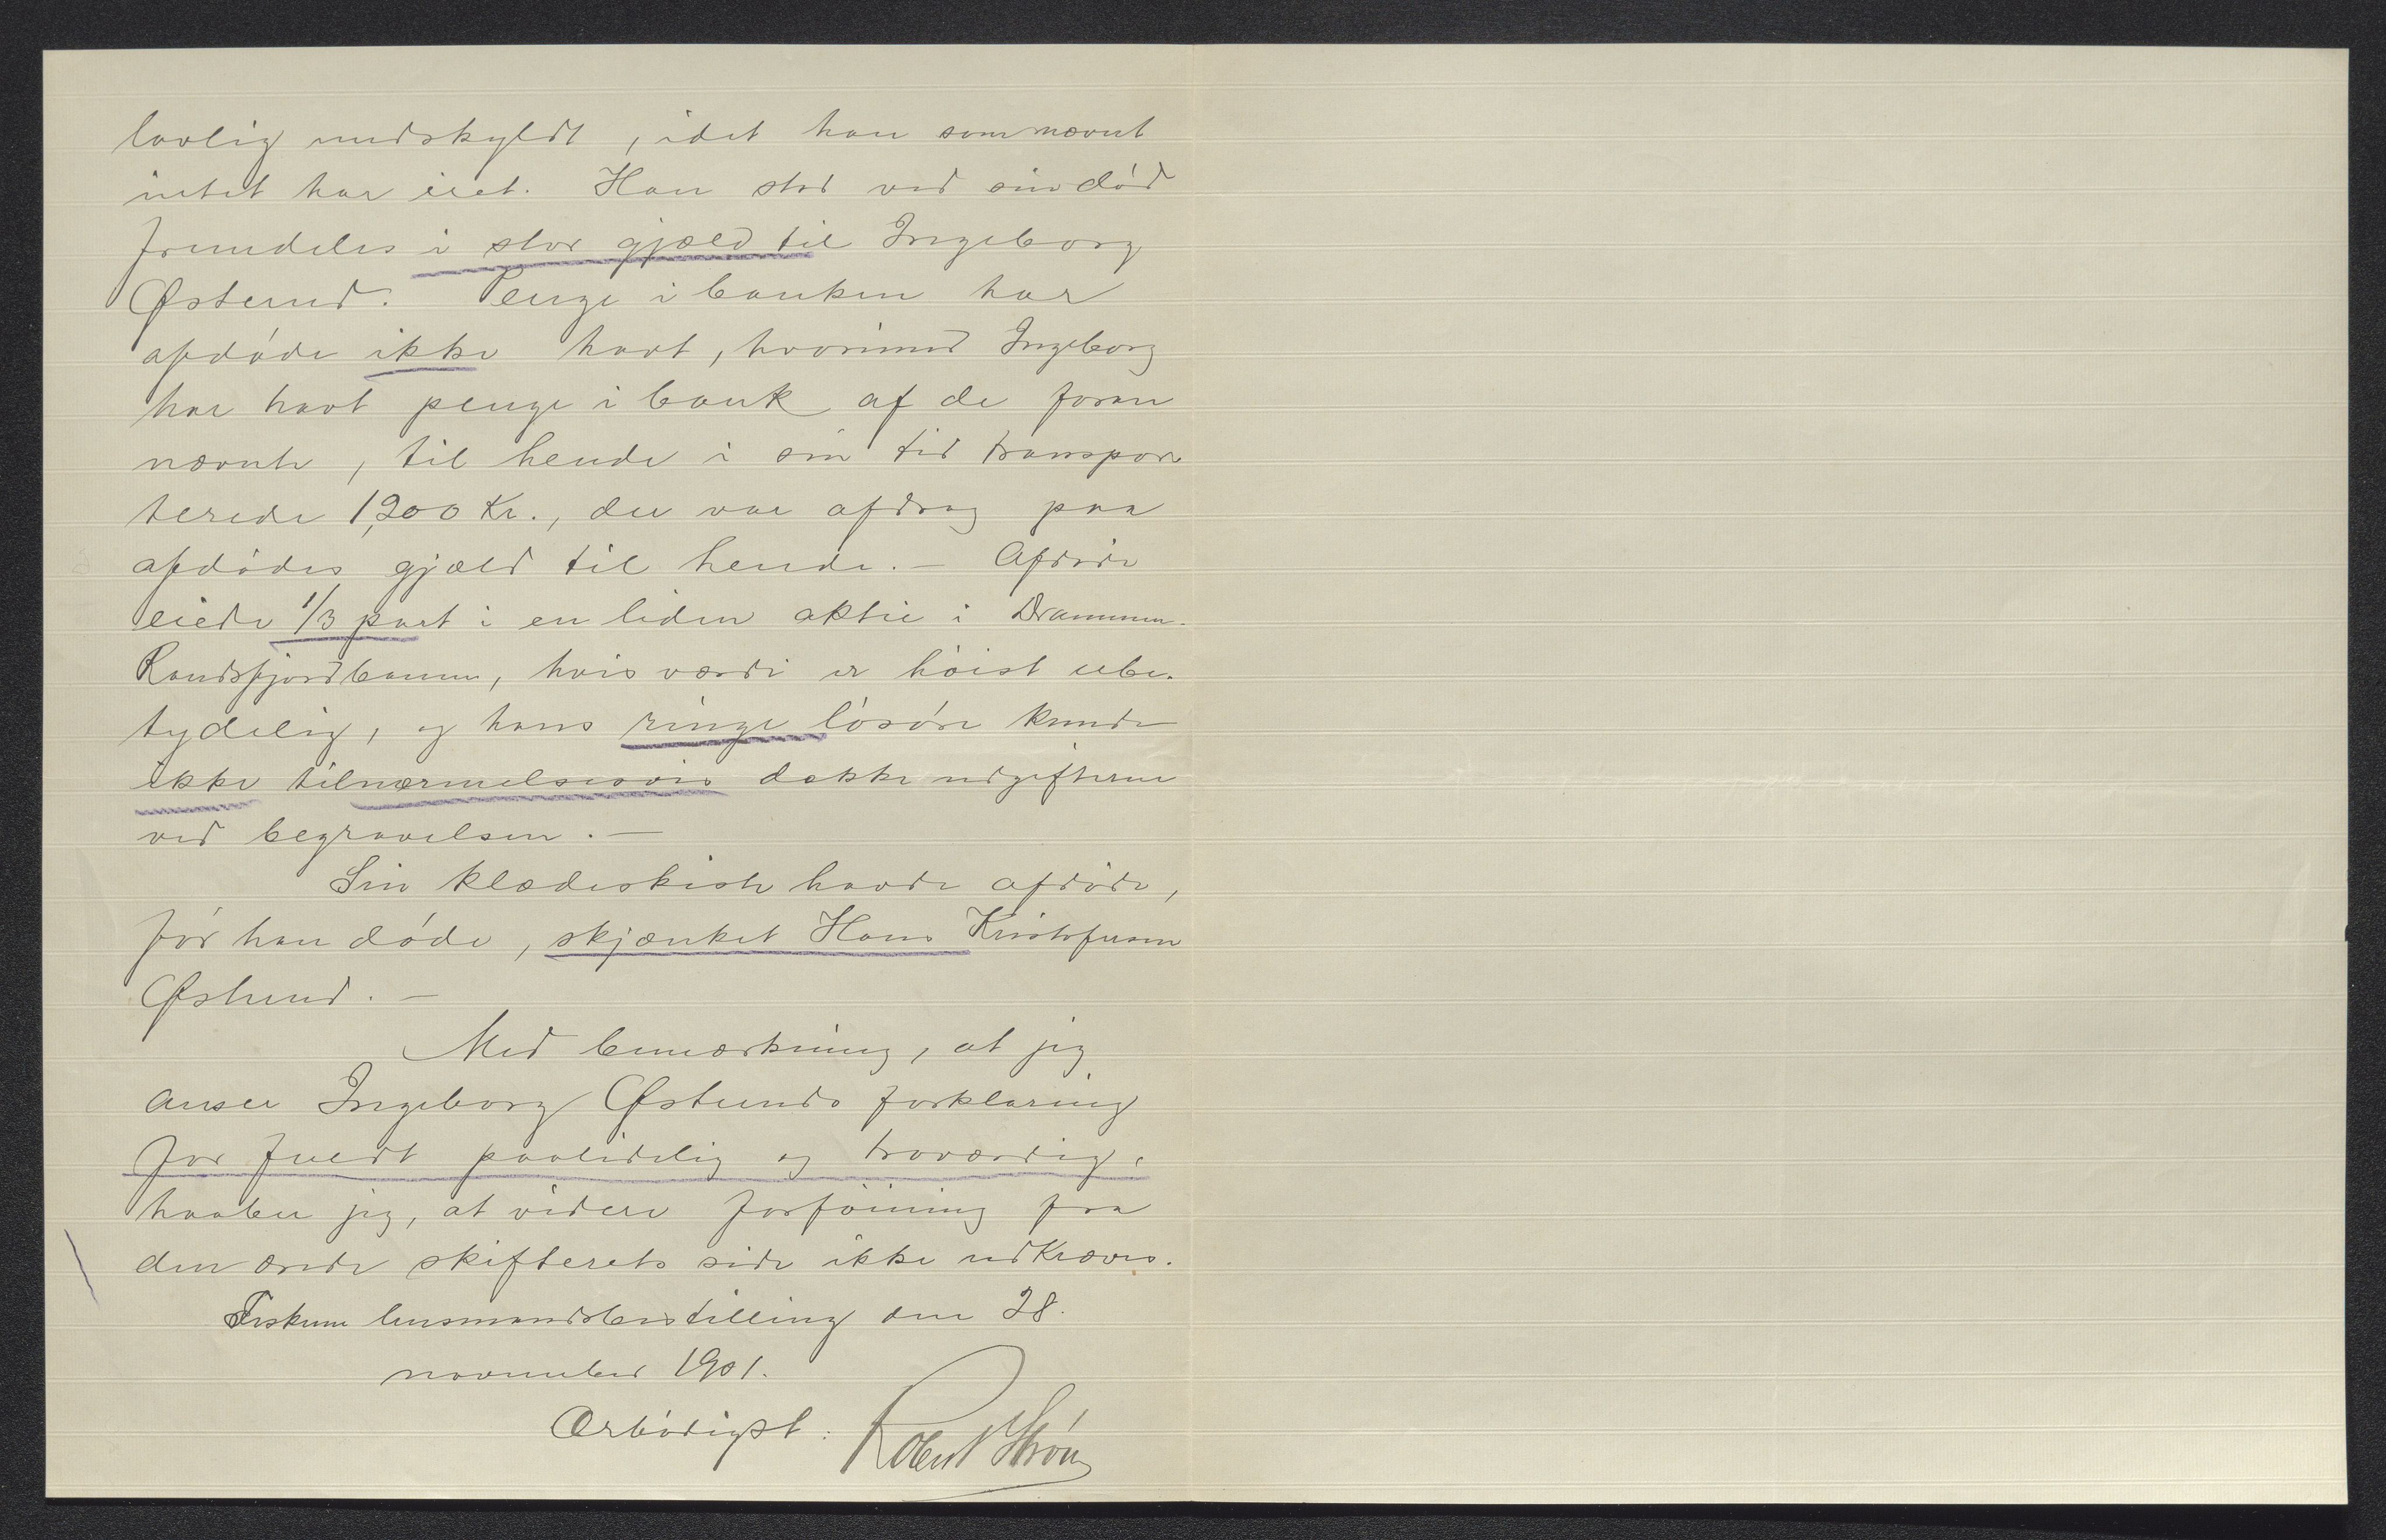 lovlig undskyldt, idet han som nævnt
intet har eiet. Han stod ved sin død
fremdeles i stor gjæld til Ingeborg
Østerud. Penge i banken har
afdøde ikke havt, hvorimod Ingeborg
har havt penge i bank af de foran
nævnte, til hende i sin tid transpor
terede 1,200 Kr., der var afdrag paa
afdødes gjæld til hende. – Afdøde
eiede 1/3 part i en liden aktie i Drammen-
Randsfjordbanen, hvis værdi er høist ube-
tydelig, og hans ringe løsøre kunde
ikke tilnærmelsesvis dække udgifterne
ved begravelsen. –
Sin klædeskiste havde afdøde,
før han døde, skjænket Hans Kristofersen
Østerud. –
Med bemærkning, at jeg
anser Ingeborg Østeruds forklaring
for fuldt paalidelig og troværdig,
haaber jeg, at videre forføining fra
den ærede skifterets side ikke udkræves.
Fiskum lensmandsbestilling den 28.
november 1901.
Ærbødigst: Robert Strøm